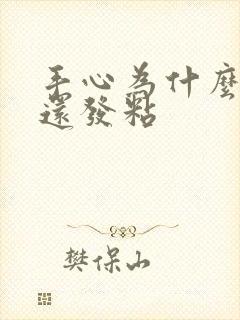 手心为什麼
還發粘
樊保山